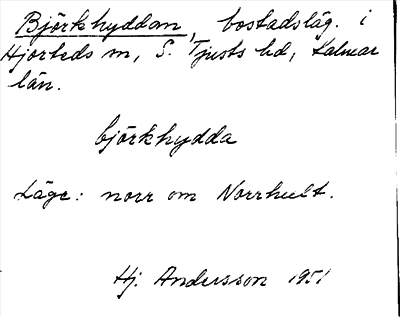 Björkhyddan, bostadsläg. i
Hjorteds sn, S. Tjusts hd, Kalmar
län.
björkhydda
Läge: norr om Norrhult.
Hj. Andersson 1951